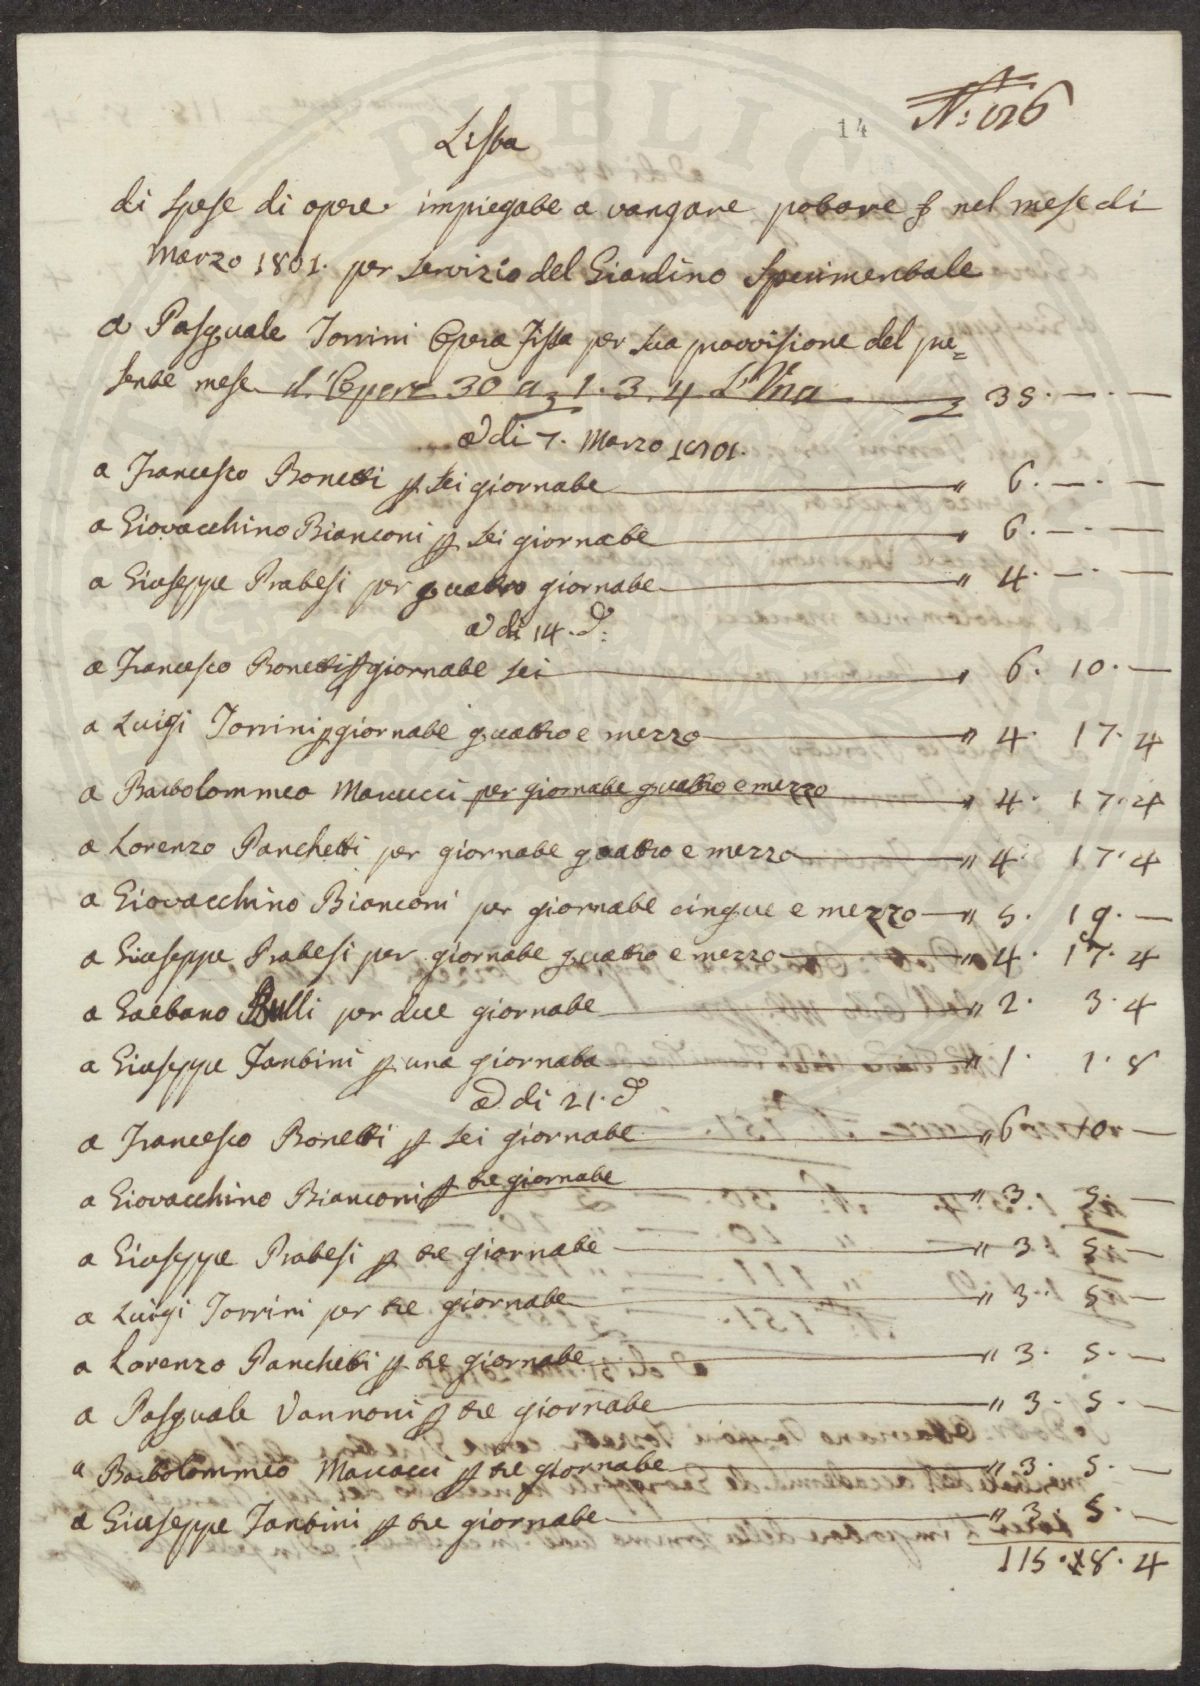 14 N: 126
Lista
di spese di opere impiegate a vangare potare & nel mese di
Marzo 1801. per servizio del Giardino Sperimentale
a Pasquale Torrini Opera fissa per sua provvisione del pre=
sente mese d'Opere 30 a £ 1. 3. 4 L'Una £ 35. — . —
a dì 7. Marzo 1801.
a Francesco Bonetti p sei giornate " 6. — . —
a Giovacchino Bianconi p sei giornate " 6. — . —
a Giuseppe Pratesi per quattro giornate " 4. — . —
a dì 14. d:
a Francesco Bonetti p giornate sei " 6. 10. —
a Luigi Torrini p giornate quattro e mezzo " 4. 17. 4
a Bartolommeo Marucci per giornate quattro e mezzo " 4. 17. 4
a Lorenzo Panchetti per giornate quattro e mezzo " 4. 17. 4
a Giovacchino Bianconi per giornate cinque e mezzo " 5. 19. —
a Giuseppe Pratesi per giornate quattro e mezzo " 4. 17. 4
a Gaetano Bulli per due giornate " 2. 3. 4
a Giuseppe Fantini p una giornata " 1. 1. 8
a dì 21. d
a Francesco Bonetti p sei giornate " 6 10 —
a Giovacchino Bianconi p tre giornate " 3. 5. —
a Giuseppe Pratesi p tre giornate " 3. 5. —
a Luigi Torrini per tre giornate " 3. 5. —
a Lorenzo Panchetti p tre giornate " 3. 5. —
a Pasquale Vannoni p tre giornate " 3. 5. —
a Bartolommeo Marucci p tre giornate " 3. 5. —
a Giuseppe Fantini p tre giornate " 3. 5. —
115. 18. 4